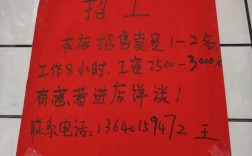 招工
本店招售卖员1-2名
工作8小时.工资2500-3000元
有意者进店详谈!
联系电话:13640159472 王